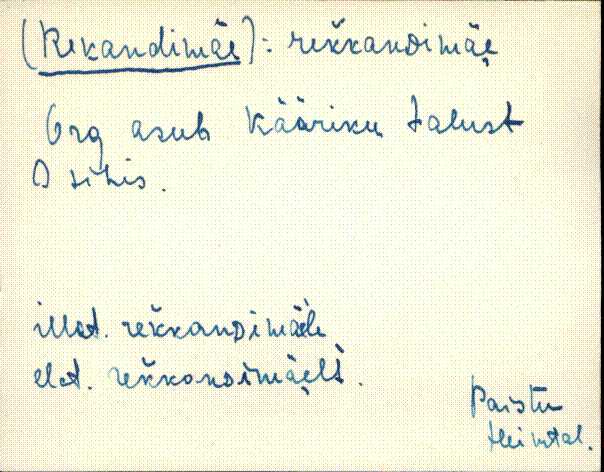 (Rekandimäe): rekkandimäe
Org asub Kääriku talust
O sihis.
illat. rekkandimäele
elat. rekkandimäelt.
Paistu
Heimtal.